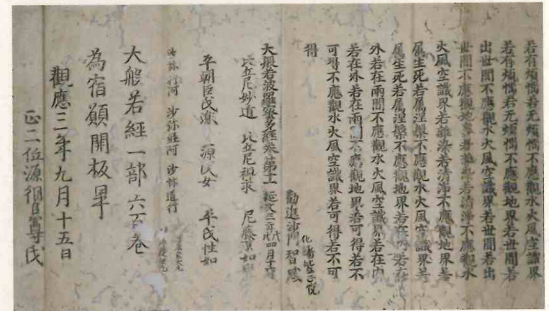 若有煩惱若無煩惱不應觀水火風空識界
若有煩惱若無煩惱不應觀地界若世間若
出世間不應觀水火風空識界若世間若出
世間不應觀地界若雜染若清淨不應觀水
火風空識界若雜染若清淨不應觀地界若
屬生死若屬涅槃不應觀水火風空識界若
屬生死若屬涅槃不應觀地界若在內若在
外若在兩間不應觀水火風空識界若在內
若在外若在兩間不應觀地界若可得若不
可得不應觀水火風空識界若可得若不可
得
勸進沙門智
大般若波羅蜜多經卷第十一
比丘尼妙道 比丘尼 求 尼
平朝臣氏 源氏女 平氏性如
沙弥行河 沙弥 阿 沙弥道行
大般若經一部六百卷
為宿願開板畢
觀應三年九月十五日
正二位源 臣尊氏